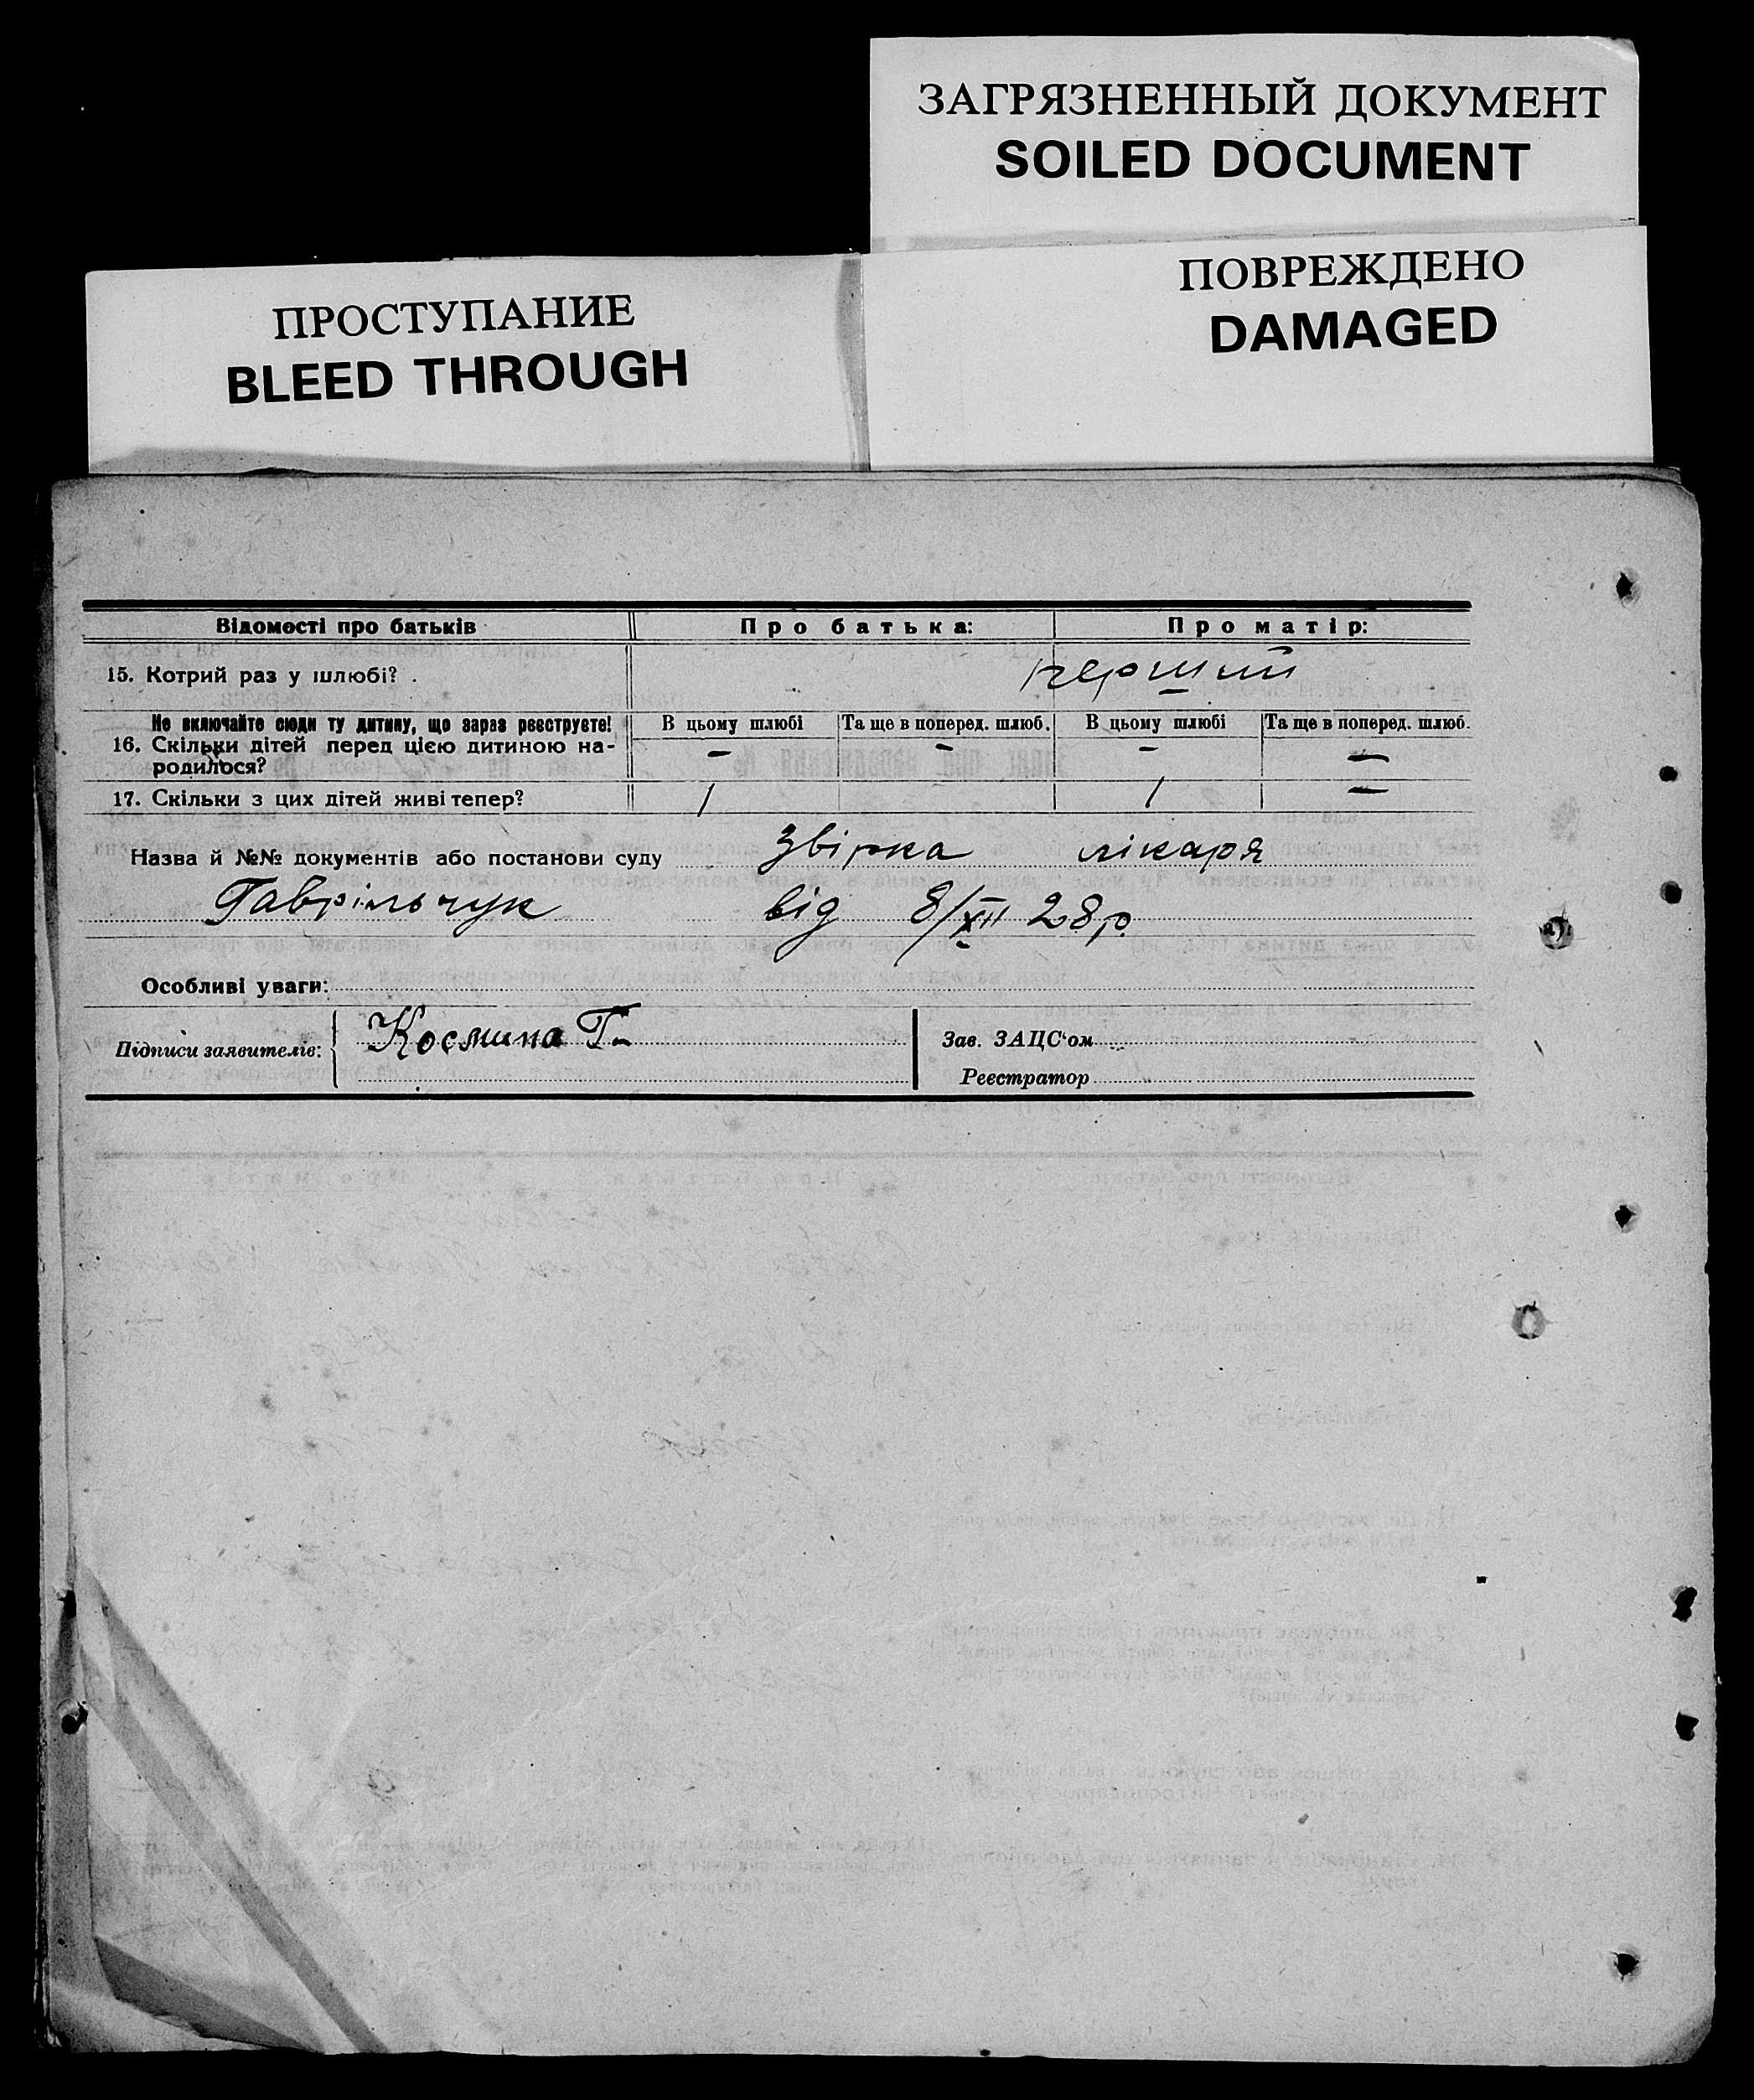 ЗАГРЯЗНЕННЫЙ ДОКУМЕНТ
SOILED DOCUMENT
ПОВРЕЖДЕНО
DAMAGED
ПРОСТУПАНИЕ
BLEED THROUGH
Відомості про батьків Про батька: Про матір:
15. Котрий раз у шлюбі? . перший
Не включайте сюди ту дитину, що зараз реєструєте! В цьому шлюбі Та ще в поперед. шлюб. В цьому шлюбі Та ще в поперед. шлюб.
16. Скільки дітей перед цією дитиною на- — — — —
родилося?
17. Скільки з цих дітей живі тепер? 1 1 —
Назва й №№ документів або постанови суду Звірка лікаря
Гаврільчук від 8/XII 28р.
Особливі уваги:
Підписи заявителів: Космина Г. Зав. ЗАЦС'ом
Реєстратор